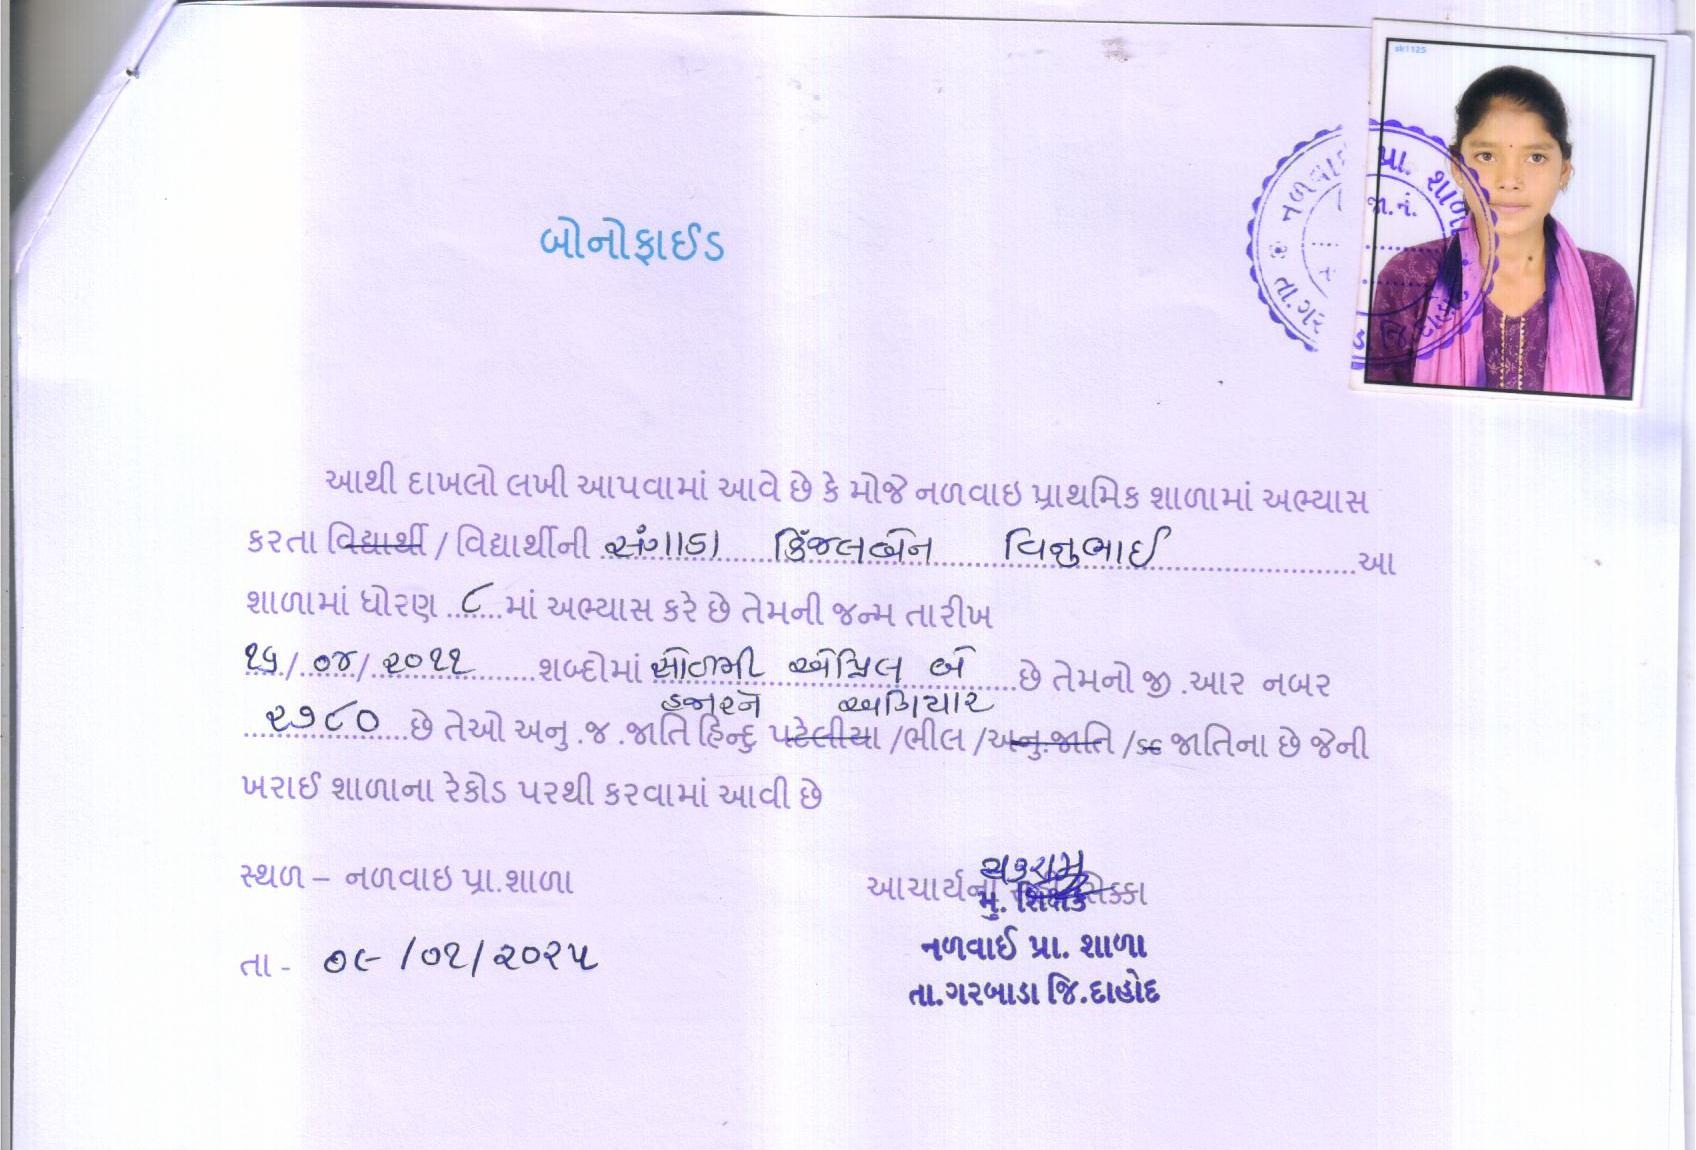 sk1125
નળવાઈ પ્રા. શાળા
જા.નં.
તા.ગરબાડા જિ.દાહોદ
બોનોફાઈડ
આથી દાખલો લખી આપવામાં આવે છે કે મોજે નળવાઇ પ્રાથમિક શાળામાં અભ્યાસ
કરતા વિદ્યાર્થી / વિદ્યાર્થીની સંગાડા કિંજલબેન વિનુભાઈ આ
શાળામાં ધોરણ ૮ માં અભ્યાસ કરે છે તેમની જન્મ તારીખ
૧૬/૦૪/૨૦૧૧ શબ્દોમાં સોળમી એપ્રિલ બે છે તેમનો જી .આર નબર
હજારને અગિયાર
૨૭૮૦ છે તેઓ અનુ .જ .જાતિ હિન્દુ પટેલીયા /ભીલ /અનુ.જાતિ / જાતિના છે જેની
ખરાઈ શાળાના રેકોડ પરથી કરવામાં આવી છે
સ્થળ – નળવાઇ પ્રા.શાળા
આચાર્યના સિક્કા
મુ. શિક્ષક
નળવાઈ પ્રા. શાળા
તા.ગરબાડા જિ.દાહોદ
તા - ૦૯/૦૧/૨૦૨૫